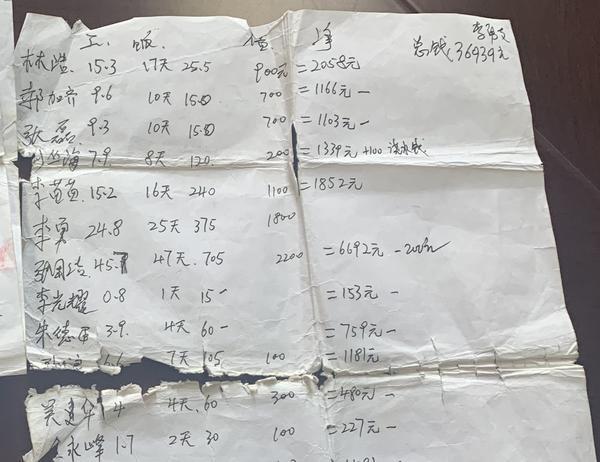 工 饭 借 净 李弟文
总钱36939元
林皑 15.3 17天 25.5 900元 =2058元
郭加齐 9.6 10天 150 700 =1166元 -
张磊 9.3 10天 150 700 =1103元 -
7.9 8天 120 200 =1339元 +100
李苗苗 15.2 16天 240 1100 =1852元
李勇 24.8 25天 375 1800
张国 45.7 47天 705 2200 =6692元 -200元
李光耀 0.8 1天 15- =153元 -
朱德田 3.9. 4天 60- =759元 -
6.6 7天 105 100 =1181元
吴建华 4 4天 60 300 =480元 -
永峰 1.7 2天 30 100 =227元 -